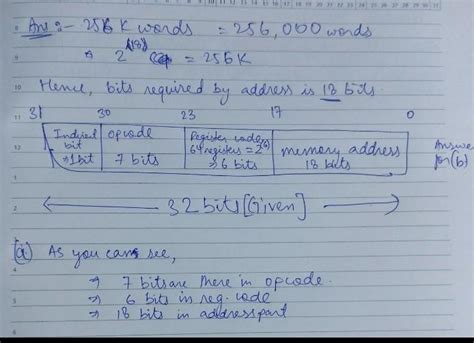 Ans:- 256 K words = 256,000 words
⇒ 2^(18) = 256K
Hence, bits required by address is 18 bits.
31 30 23 17 0
Indirect bit ⇒ 1 bit
opcode 7 bits
Register code 64 registers = 2^(6) ⇒ 6 bits
memory address 18 bits
Answer for (b)
32 bits [Given]
(a) As you can see,
⇒ 7 bits are there in opcode.
⇒ 6 bits in reg. code
⇒ 18 bits in address part